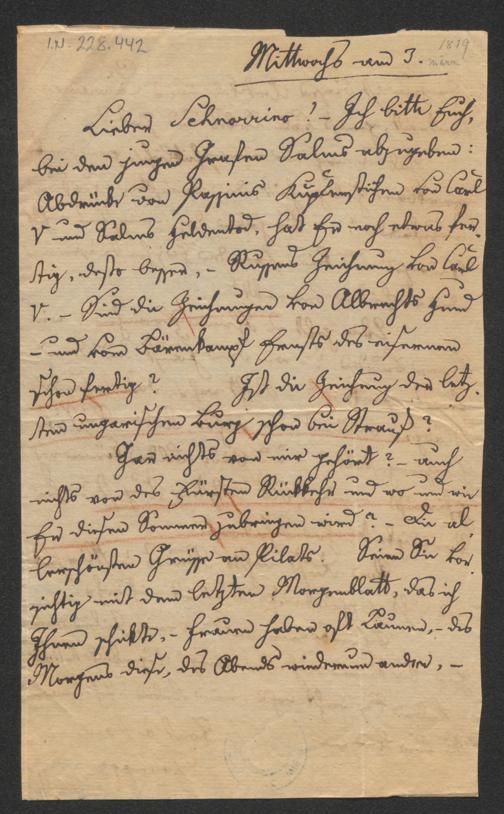 I.N. 228.442
1819
Mittwochs am 3. März
Lieber Schnorrino! – Ich bitte Euch,
bei dem jungen Grafen Salms abzugeben:
Abdrücke von Passinis Kupferstichen von Carl
V und Salms Heldentod, hat Er noch etwas fer-
tig, desto besser, – Russens Zeichnung von Carl
V. – Sind die Zeichnungen von Albrechts Hund
– und vom Bärenkampf Ernsts des eisernen
schon fertig? Ist die Zeichnung der letz-
ten ungarischen Burg schon bei Strauß?
Gar nichts von mir gehört? – auch
nichts von des Fürsten Rückkehr und wo und wie
Er diesen Sommer zubringen wird? – Die al-
lerschönsten Grüsse an Pilats. Seien Sie vor-
sichtig mit dem letzten Morgenblatt, das ich
Ihnen schikte, – Frauen haben oft Launen, – des
Morgens diese, des Abends wiederum andre, –